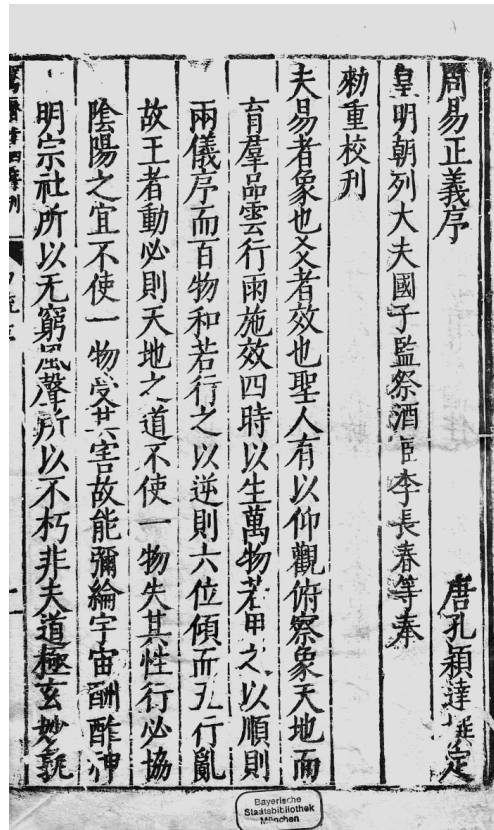 周易正義序
唐孔穎達撰定
皇明朝列大夫國子監祭酒臣李長春等奉
勑重校刋
夫易者象也爻者效也聖人有以仰觀俯察象天地而
育羣品雲行雨施效四時以生萬物若用之以順則
兩儀序而百物和若行之以逆則六位傾而五行亂
故王者動必則天地之道不使一物失其性行必協
陰陽之宜不使一物受其害故能彌綸宇宙酬酢神
明宗社所以无窮風聲所以不朽非夫道極玄妙孰
Bayerische
Staatsbibliothek
München